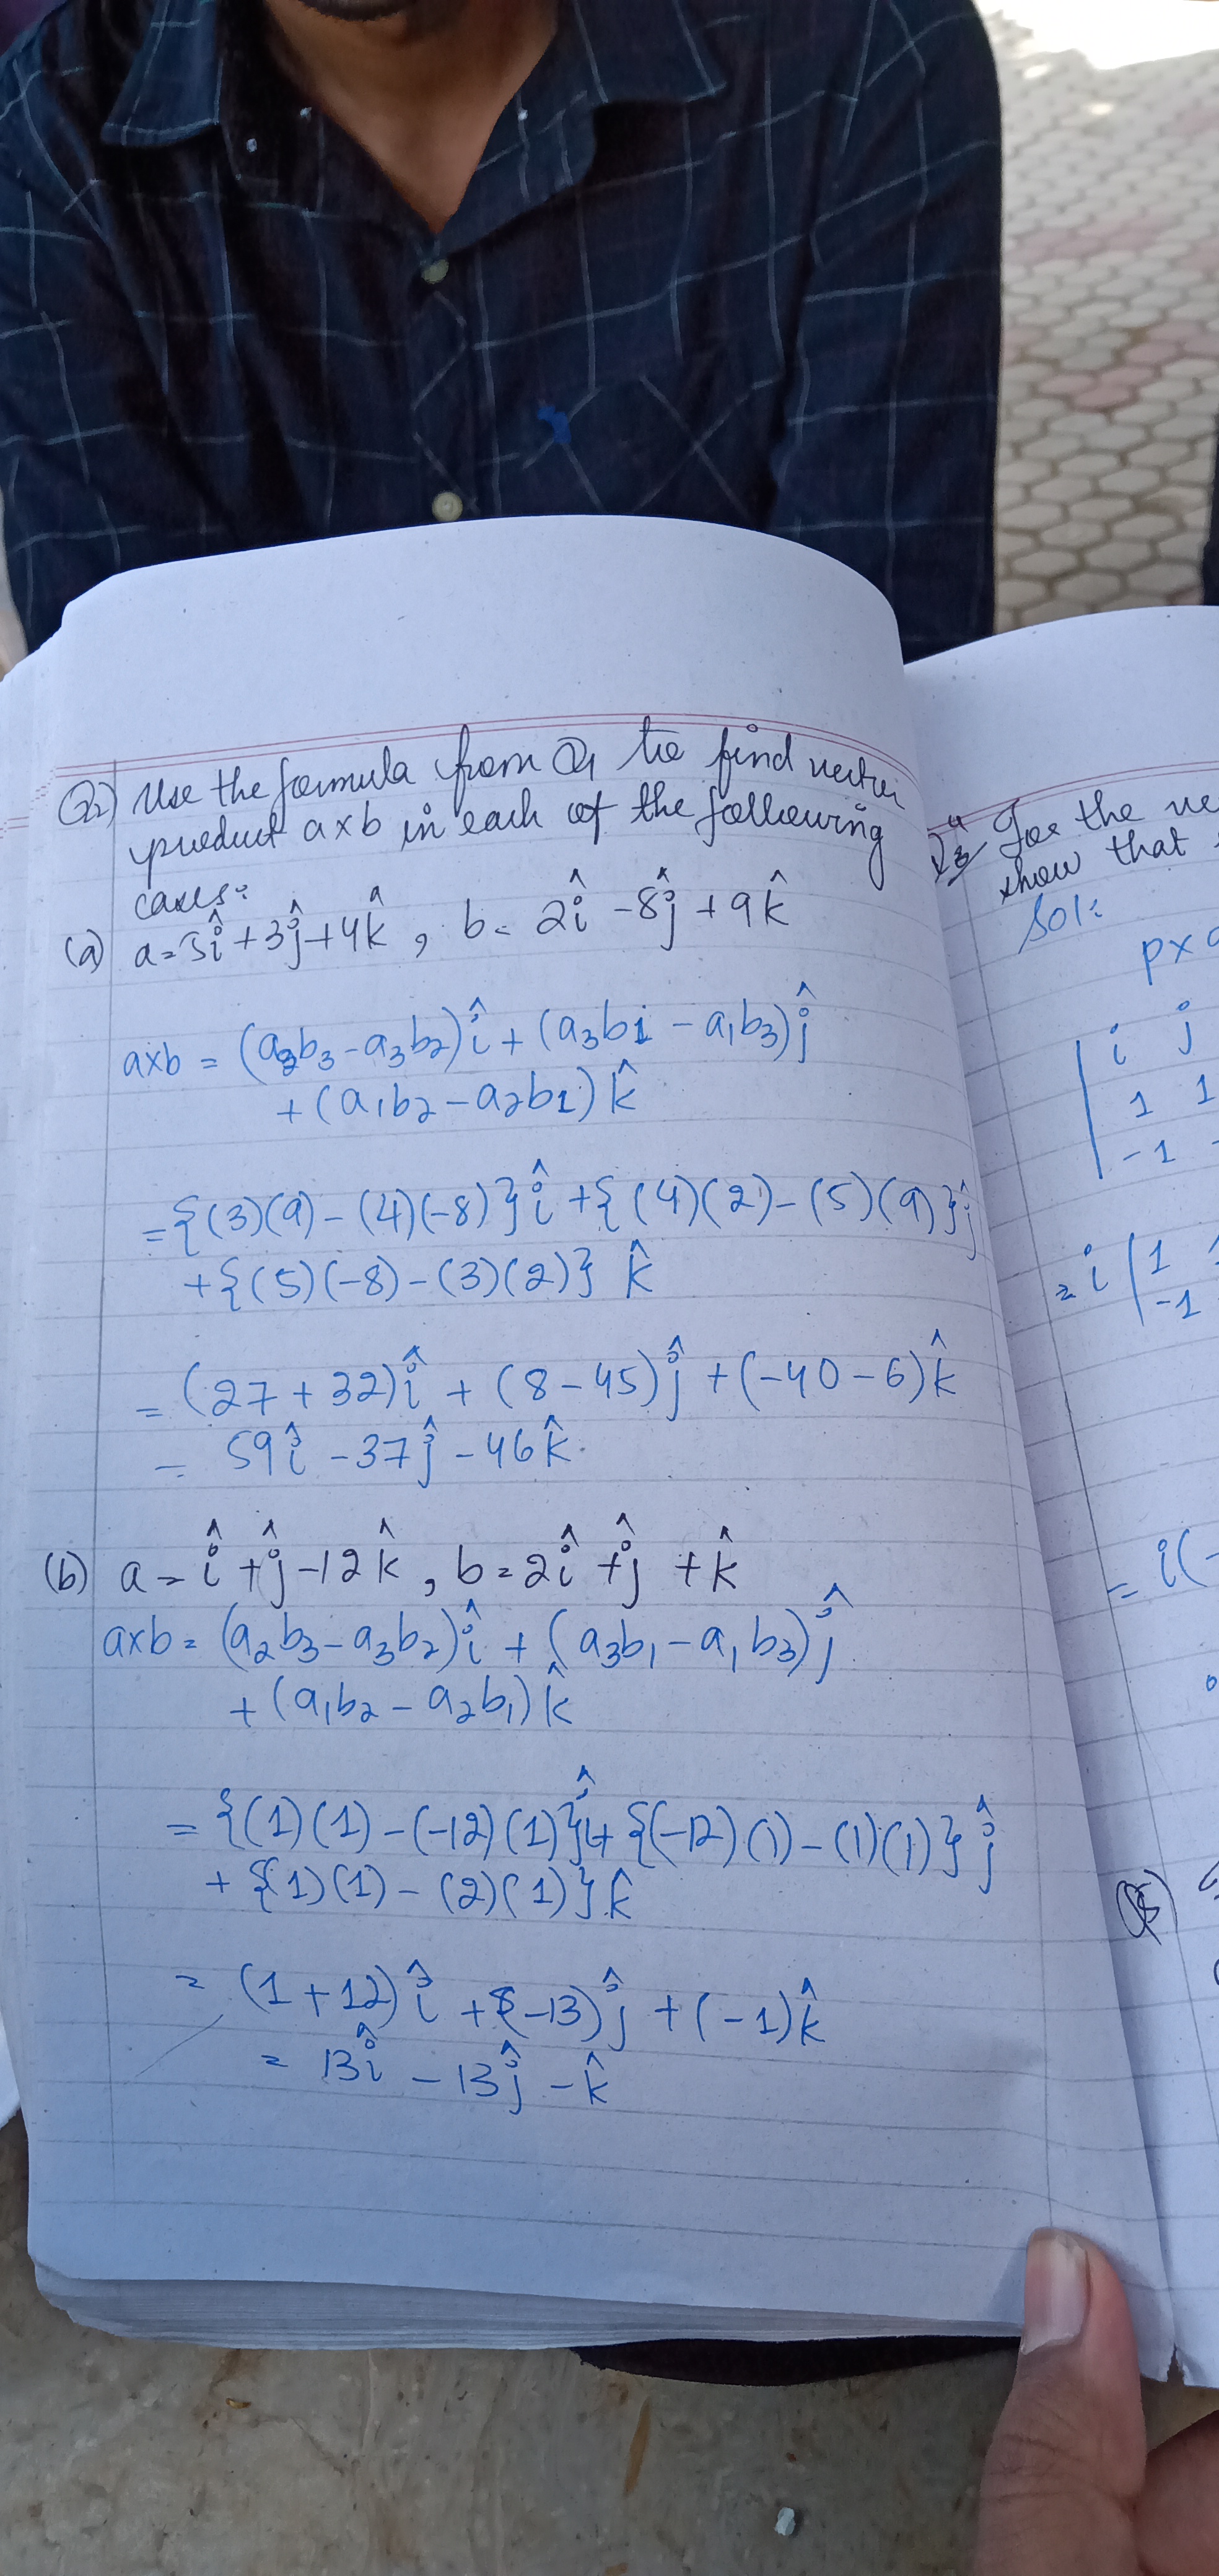 Q2) Use the formula from Q1 to find vector
product a×b in each of the following
cases:
(a) a=5î+3ĵ+4k̂, b= 2î-8ĵ+9k̂
a×b = (a2b3-a3b2)î+(a3b1-a1b3)ĵ
+(a1b2-a2b1)k̂
={(3)(9)-(4)(-8)}î+{(4)(2)-(5)(9)}ĵ
+{(5)(-8)-(3)(2)} k̂
= (27+32)î + (8-45)ĵ+(-40-6)k̂
= 59î-37ĵ-46k̂
(b) a=î+ĵ-12k̂, b=2î+ĵ+k̂
a×b= (a2b3-a3b2)î + (a3b1-a1b3)ĵ
+(a1b2-a2b1)k̂
= {(1)(1)-(-12)(1)}î+{(-12)(1)-(1)(1)}ĵ
+{(1)(1)-(2)(1)}k̂
= (1+12)î +(-13)ĵ+(-1)k̂
= 13î-13ĵ-k̂
For the ve
show that
Sol:
p×
i j
1 1
-1
=i|1
-1
=i(-